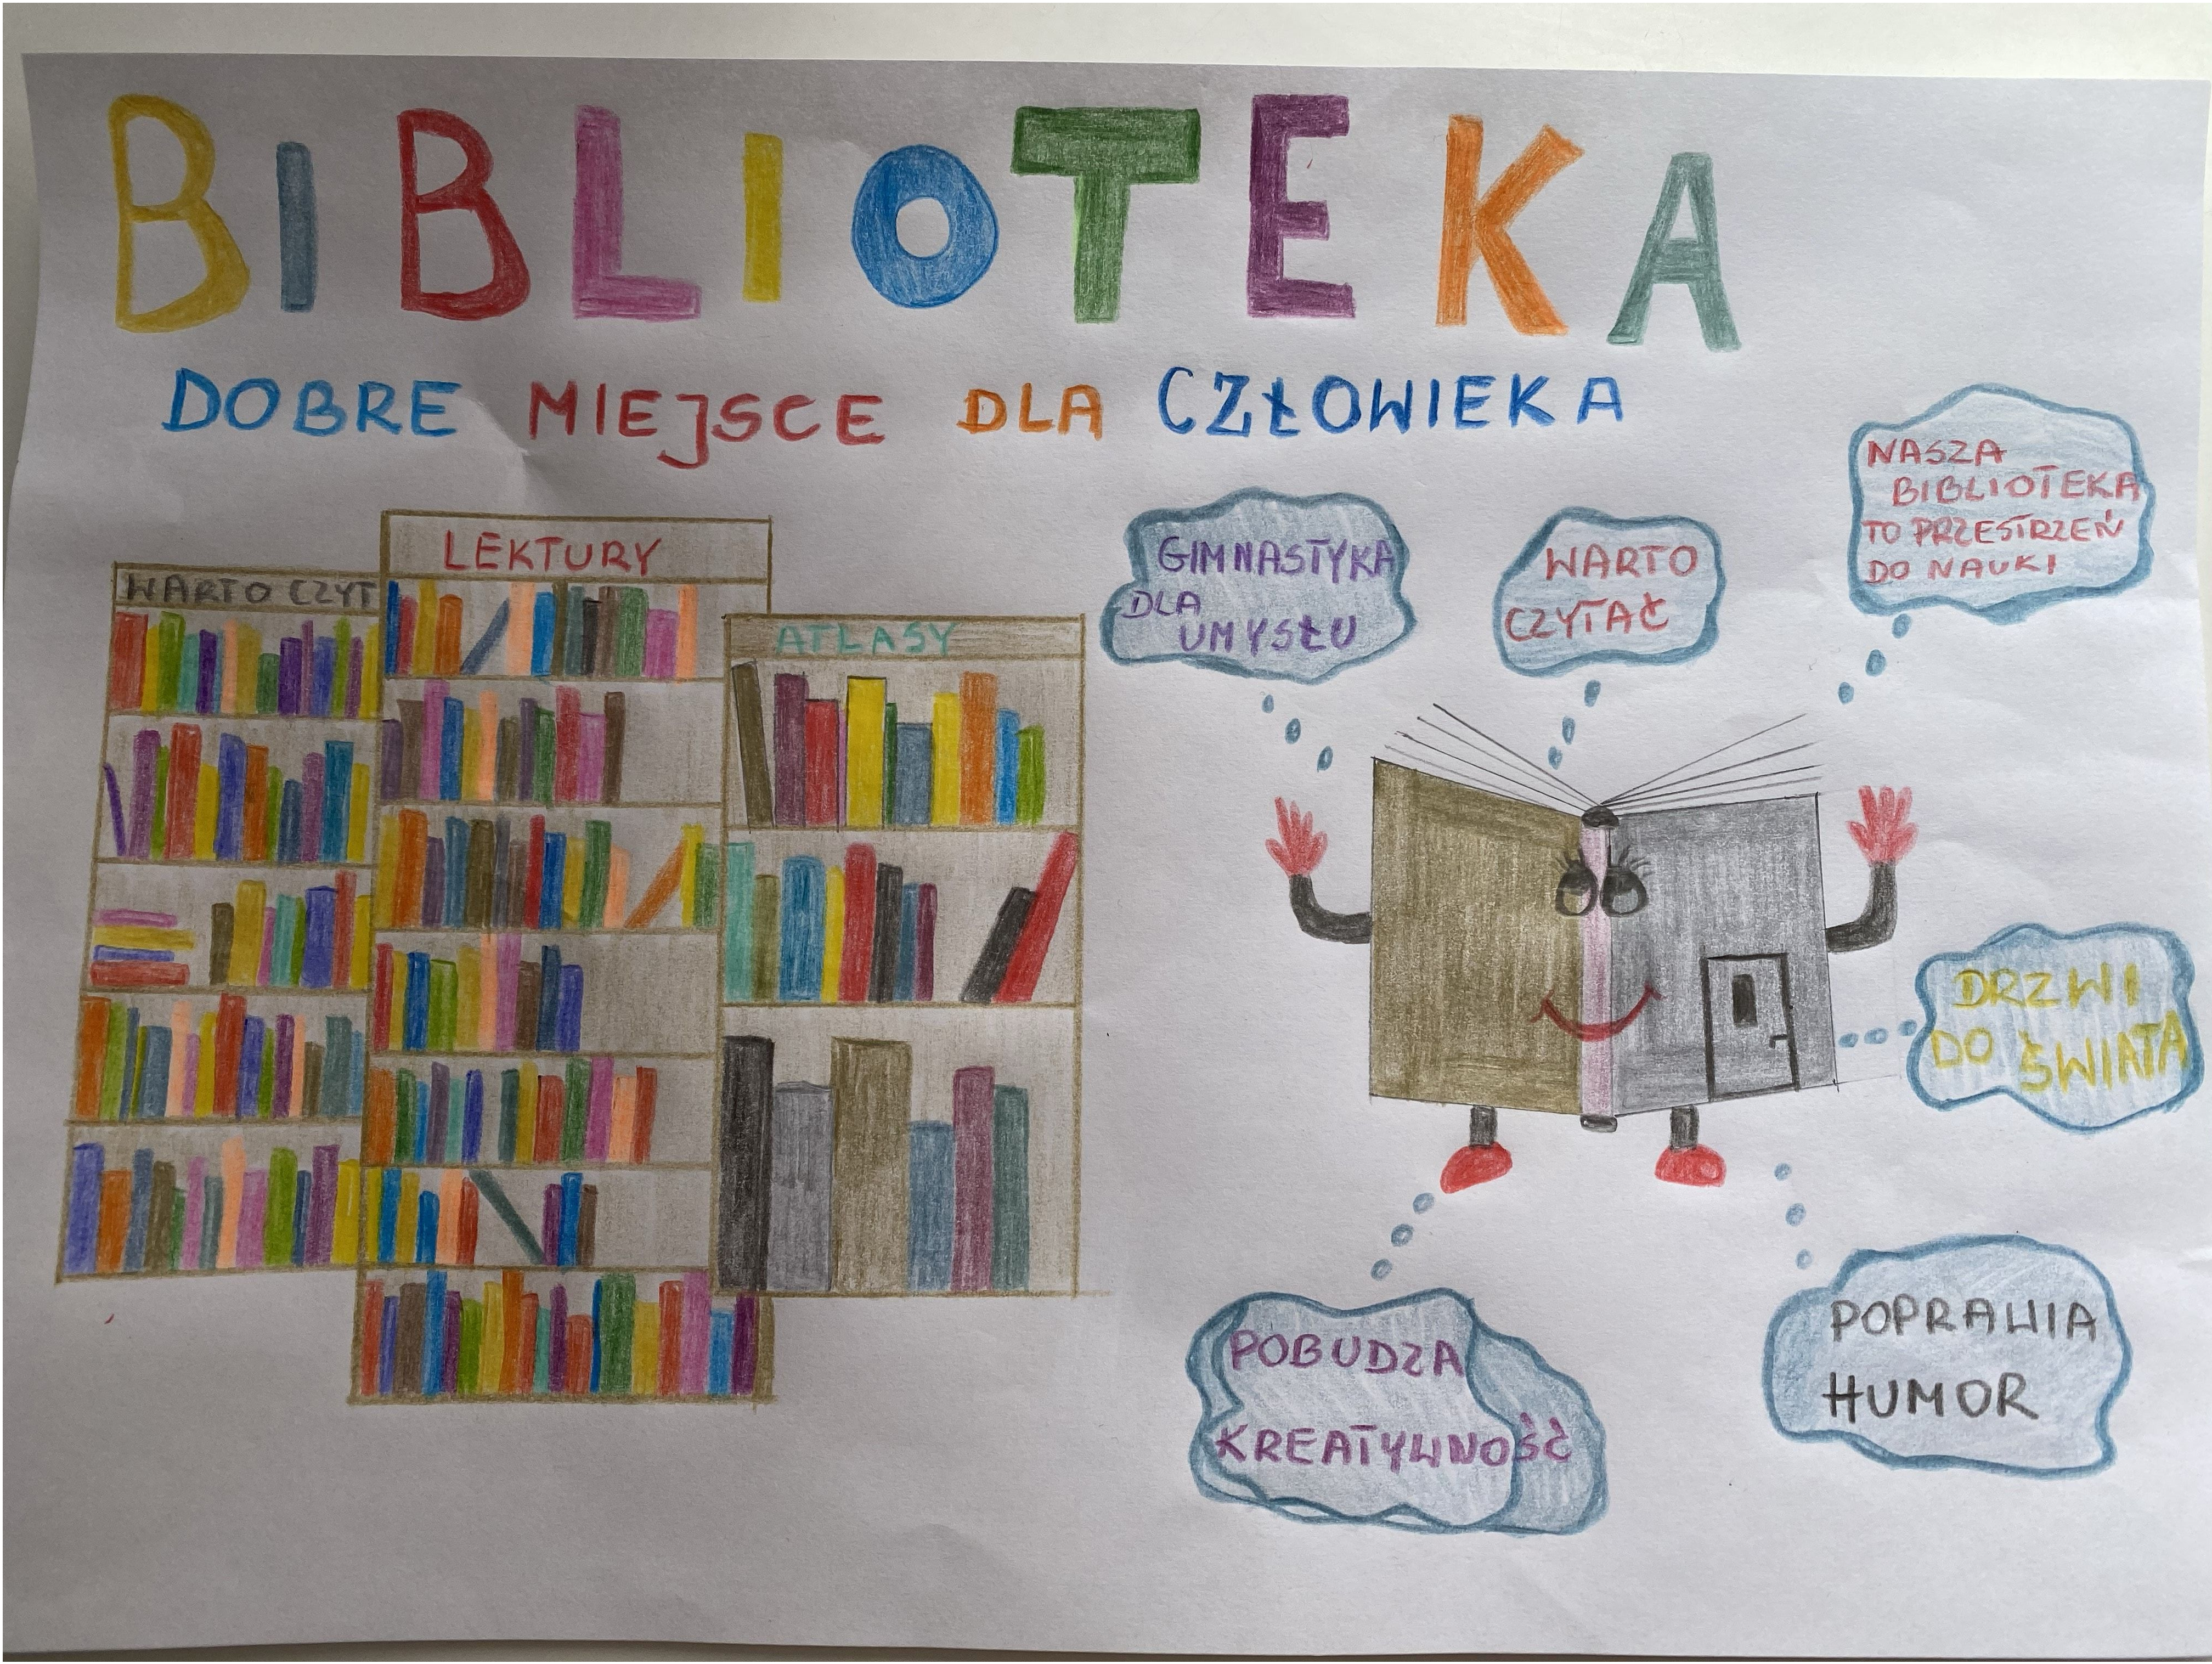 BIBLIOTEKA
DOBRE MIEJSCE DLA CZŁOWIEKA
WARTO CZYT
LEKTURY
ATLASY
GIMNASTYKA
DLA
UMYSŁU
WARTO
CZYTAĆ
NASZA
BIBLIOTEKA
TO PRZESTRZEŃ
DO NAUKI
DRZWI
DO ŚWIATA
POBUDZA
KREATYWNOŚĆ
POPRAWIA
HUMOR